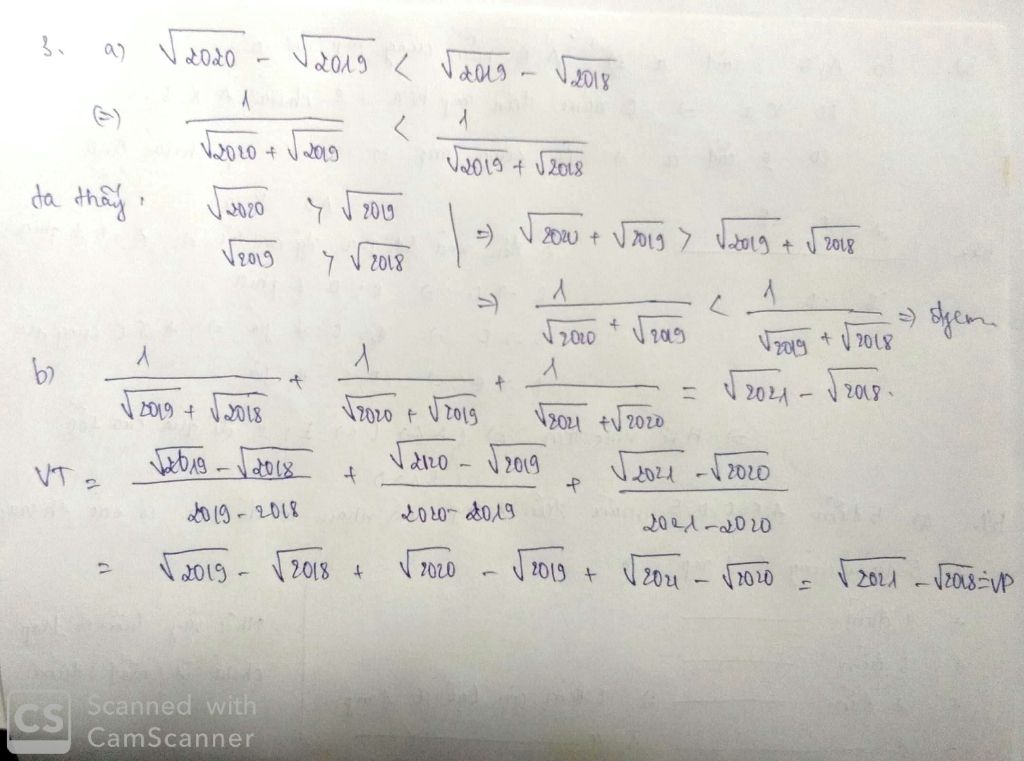 3. a) √2020 - √2019 < √2019 - √2018
(=) 1/(√2020 + √2019) < 1/(√2019 + √2018)
ta thấy: √2020 > √2019
√2019 > √2018 | => √2020 + √2019 > √2019 + √2018
=> 1/(√2020 + √2019) < 1/(√2019 + √2018) => đpcm
b) 1/(√2019 + √2018) + 1/(√2020 + √2019) + 1/(√2021 + √2020) = √2021 - √2018.
VT = (√2019 - √2018)/(2019 - 2018) + (√2020 - √2019)/(2020 - 2019) + (√2021 - √2020)/(2021 - 2020)
= √2019 - √2018 + √2020 - √2019 + √2021 - √2020 = √2021 - √2018 = VP
CS Scanned with
CamScanner